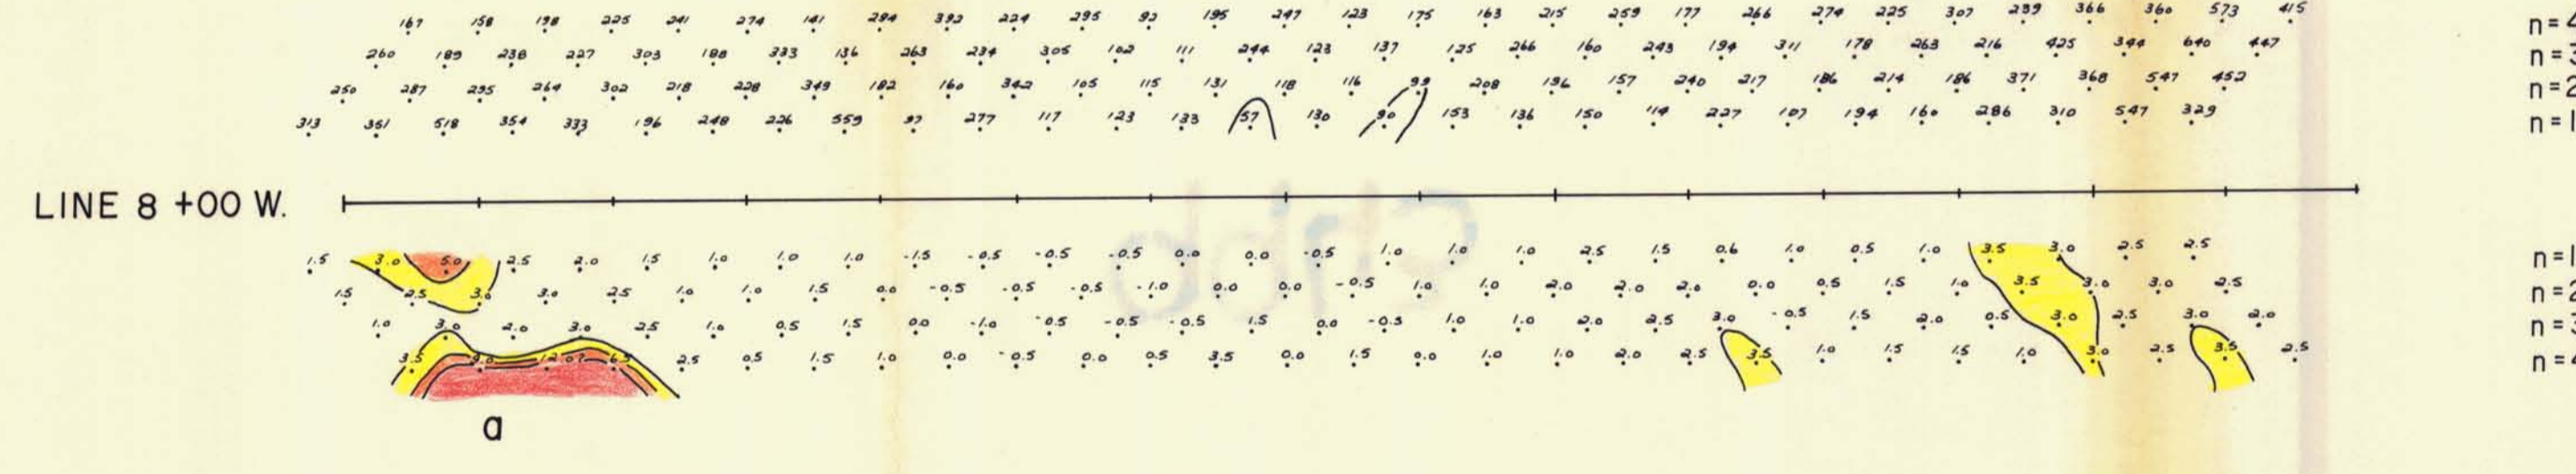 167 158 198 225 241 274 141 284 392 224 295 92 195 247 123 175 163 215 259 177 266 274 225 307 289 366 360 573 415 n=4
260 189 238 227 303 188 333 136 263 234 305 102 111 244 123 137 125 266 160 243 194 311 178 263 216 425 344 640 447 n=3
250 287 295 264 302 218 228 349 182 160 342 105 115 131 118 116 99 208 196 157 240 217 186 214 186 371 368 547 452 n=2
313 351 518 354 333 196 248 226 559 97 277 117 123 133 57 130 90 153 136 150 114 227 107 194 160 286 310 547 329 n=1
LINE 8 +00 W.
1.5 3.0 5.0 2.5 2.0 1.5 1.0 1.0 1.0 -1.5 -0.5 -0.5 -0.5 0.0 0.0 -0.5 1.0 1.0 1.0 2.5 1.5 0.6 1.0 0.5 1.0 3.5 3.0 2.5 2.5 n=1
1.5 2.5 3.0 3.0 2.5 1.0 1.0 1.5 0.0 -0.5 -0.5 -0.5 -1.0 0.0 0.0 -0.5 1.0 1.0 2.0 2.0 2.0 0.0 0.5 1.5 1.0 3.5 3.0 3.0 2.5 n=2
1.0 3.0 2.0 3.0 2.5 1.0 0.5 1.5 0.0 -1.0 -0.5 -0.5 -0.5 1.5 0.0 -0.5 1.0 1.0 2.0 2.5 3.0 -0.5 1.5 2.0 0.5 3.0 2.5 3.0 2.0 n=3
3.5 9.0 12.0 6.5 2.5 0.5 1.5 1.0 0.0 -0.5 0.0 0.5 3.5 0.0 1.5 0.0 1.0 1.0 2.0 2.5 3.5 1.0 1.5 1.5 1.0 3.0 2.5 3.5 2.5 n=4
a